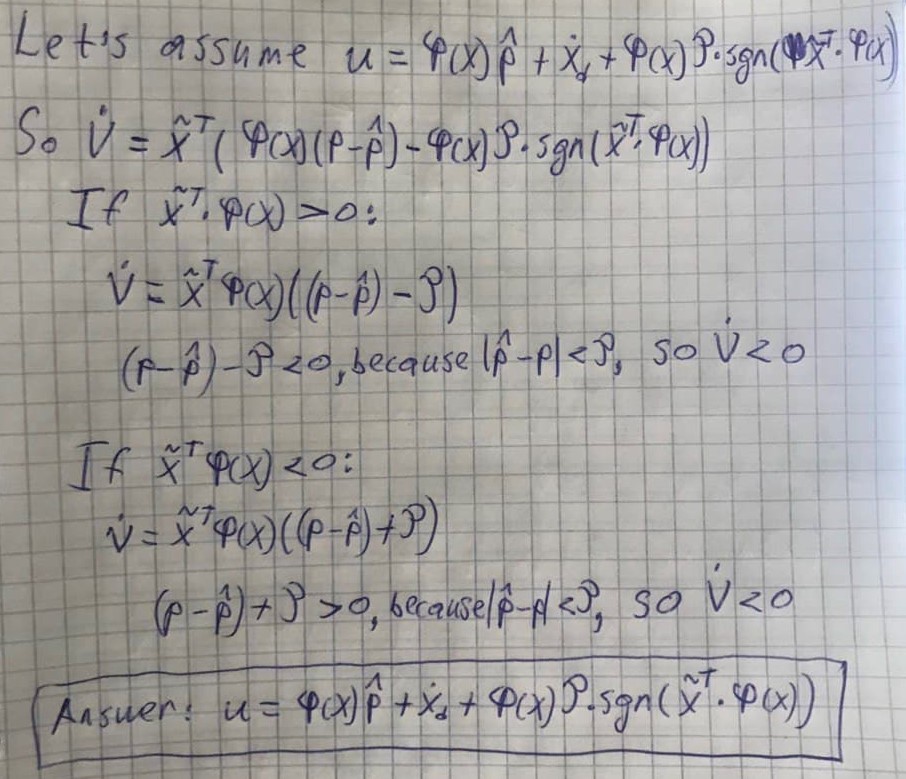 Let's assume u = φ(x)p̂ + ẋ_d + φ(x)ρ·sgn(x̃ᵀ·φ(x))
So V̇ = x̃ᵀ(φ(x)(p-p̂) - φ(x)ρ·sgn(x̃ᵀ·φ(x))
If x̃ᵀ·φ(x) > 0:
V̇ = x̃ᵀφ(x)((p-p̂) - ρ)
(p-p̂) - ρ < 0, because |p̂-p| < ρ, so V̇ < 0
If x̃ᵀφ(x) < 0:
V̇ = x̃ᵀφ(x)((p-p̂) + ρ)
(p-p̂) + ρ > 0, because |p̂-p| < ρ, so V̇ < 0
Answer: u = φ(x)p̂ + ẋ_d + φ(x)ρ·sgn(x̃ᵀ·φ(x))